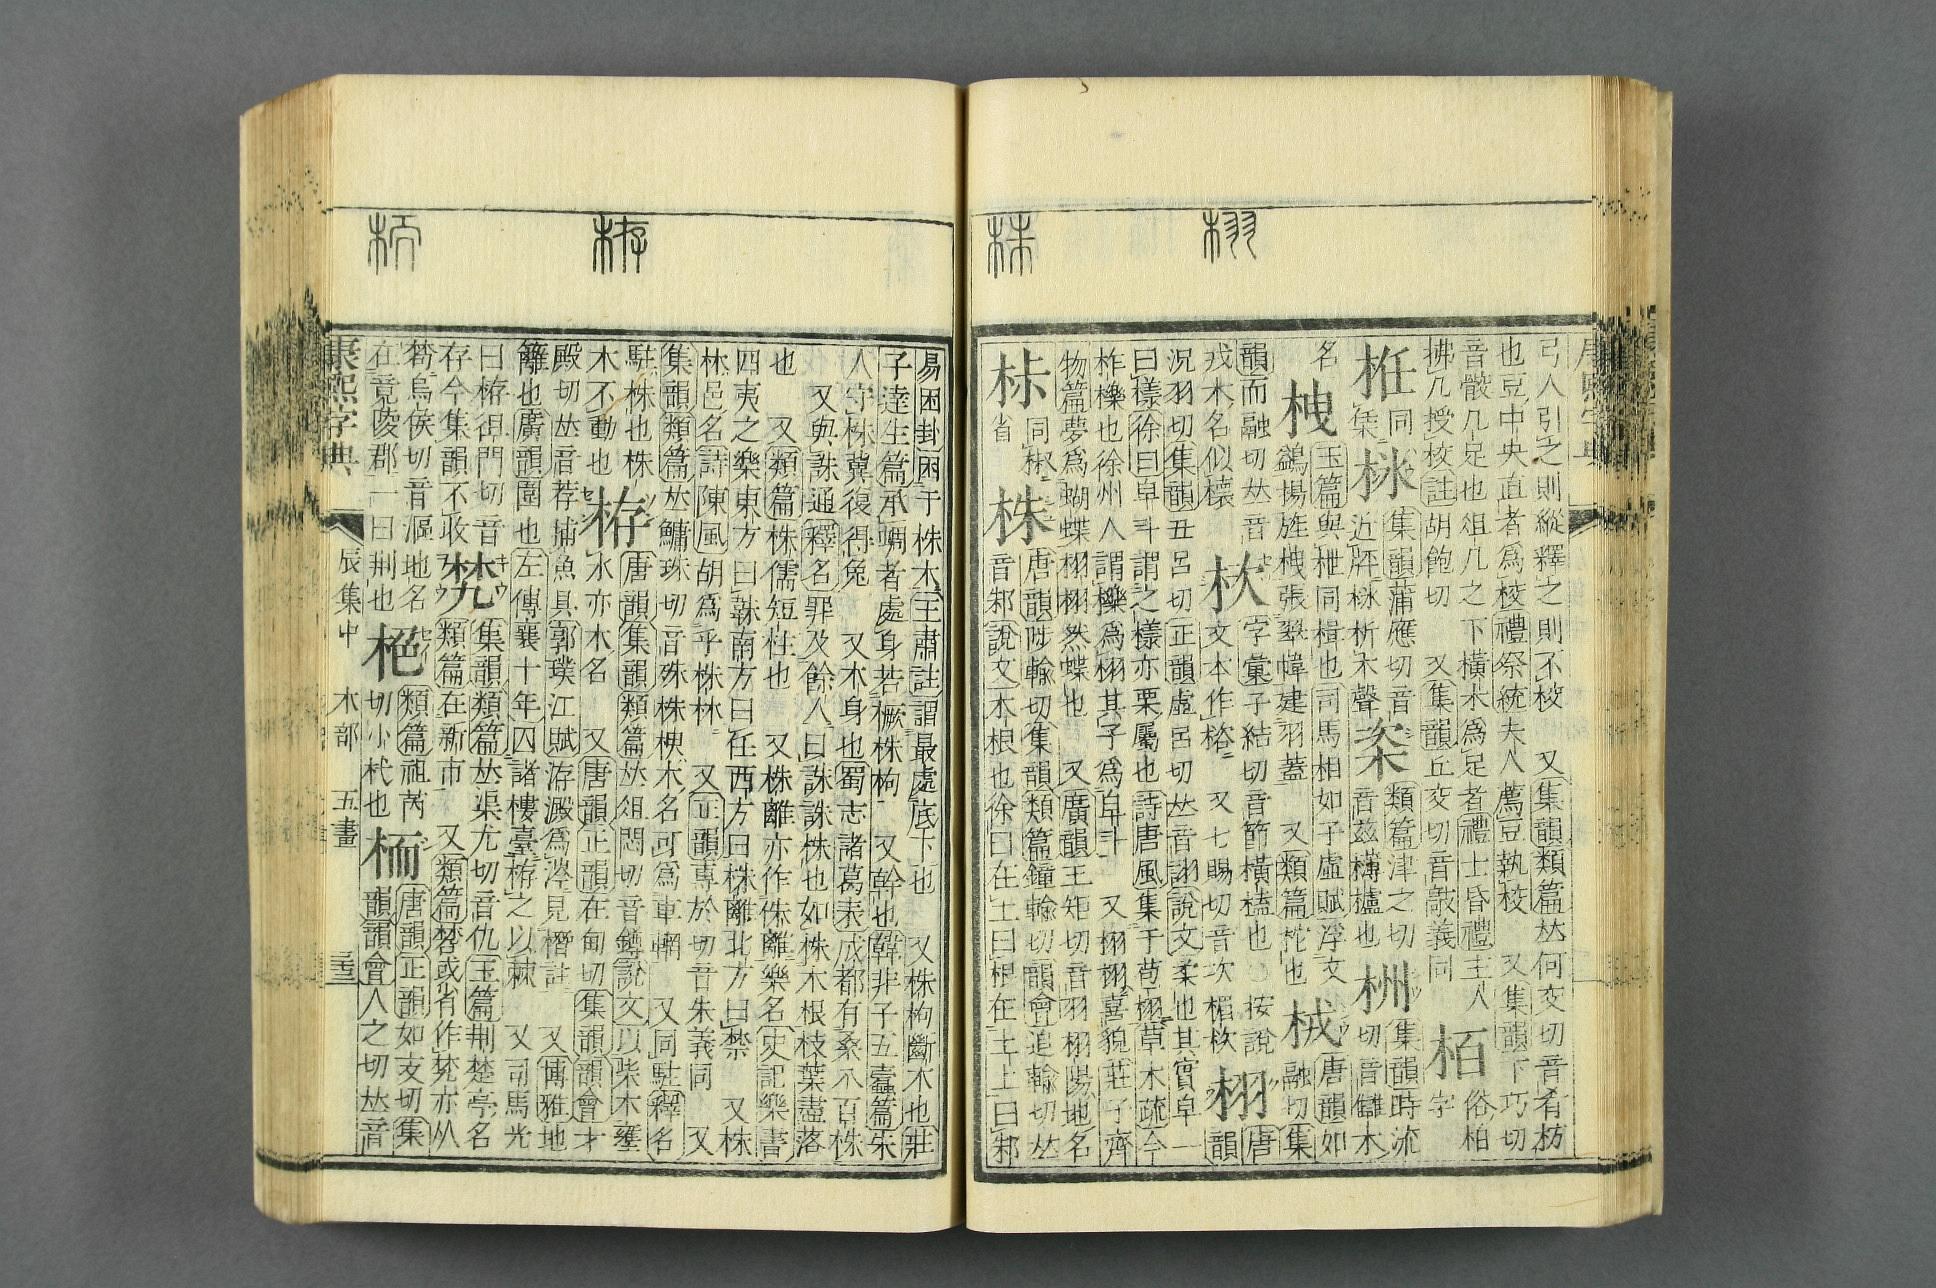 栩
株
栫
栭
弓人引之則縱釋之則不校 又集韻類篇𠀤何交切音肴枋
也豆中央直者爲校禮祭統夫人薦豆執校 又集韻下巧切
音骹几足也俎几之下橫木爲足者禮士昏禮主人 栢 俗柏
拂几授校註胡飽切 又集韻丘交切音敲義同 字
同 集韻蒲應切音 類篇津之切 栦 集韻時流
近 析木聲 音兹欂櫨也 切音讎木
名 栧 玉篇與枻同楫也司馬相如子虛賦浮文 㭜 唐韻如
鷁揚旌栧張翠幃建羽蓋 又類篇柁也 融切集
韻而融切𠀤音 栨 字彙子結切音節橫橽也 按說 栩 唐
戎木名似檍 文本作楶 又七賜切音次楣栨 韻
況羽切集韻丑呂切正韻虛呂切𠀤音詡說文柔也其實皁一
曰樣徐曰皁斗謂之樣亦栗屬也詩唐風集于苞栩草木疏今
柞櫟也徐州人謂櫟爲栩其子爲皁斗 又栩栩喜貌莊子齊
物篇夢爲蝴蝶栩栩然蝶也 又廣韻王矩切音羽栩陽地名
同椒 株 唐韻陟輸切集韻類篇鐘輸切韻會追輸切𠀤
省 音邾說文木根也徐曰在土曰根在土上曰邾
易困卦困于株木王肅註謂最處底下也 又株枸斷木也莊
子達生篇承蜩者處身若橛株枸 又幹也韓非子五蠹篇宋
人守株冀復得兔 又木身也蜀志諸葛表成都有桑八百株
又與誅通釋名罪及餘人曰誅誅株也如株木根枝葉盡落
也 又類篇株儒短柱也 又株離亦作侏離樂名史記樂書
四夷之樂東方曰韎南方曰任西方曰株離北方曰禁 又株
林邑名詩陳風胡爲乎株林 又正韻專於切音朱義同 又
集韻類篇𠀤鱅珠切音殊株柍木名可爲車輞 又同駐釋名
駐株也株 栫 唐韻集韻類篇𠀤徂悶切音鐏說文以柴木壅
木不動也 水亦木名 又唐韻正韻在甸切集韻韻會才
殿切𠀤音荐捕魚具郭璞江賦栫澱爲涔見橬註 又博雅地
籬也廣韻圍也左傳襄十年囚諸樓臺栫之以棘 又司馬光
曰栫徂門切音 集韻類篇𠀤渠尤切音仇玉篇荆楚亭名
存今集韻不收 類篇在新市 又類篇 或省作 亦从
烏侯切音漚地名 栬 類篇祖芮 栭 唐韻正韻如支切集
在竟陵郡一曰荆也 切小杙也 韻韻會人之切𠀤音
康熙字典 辰集中 木部 五畫